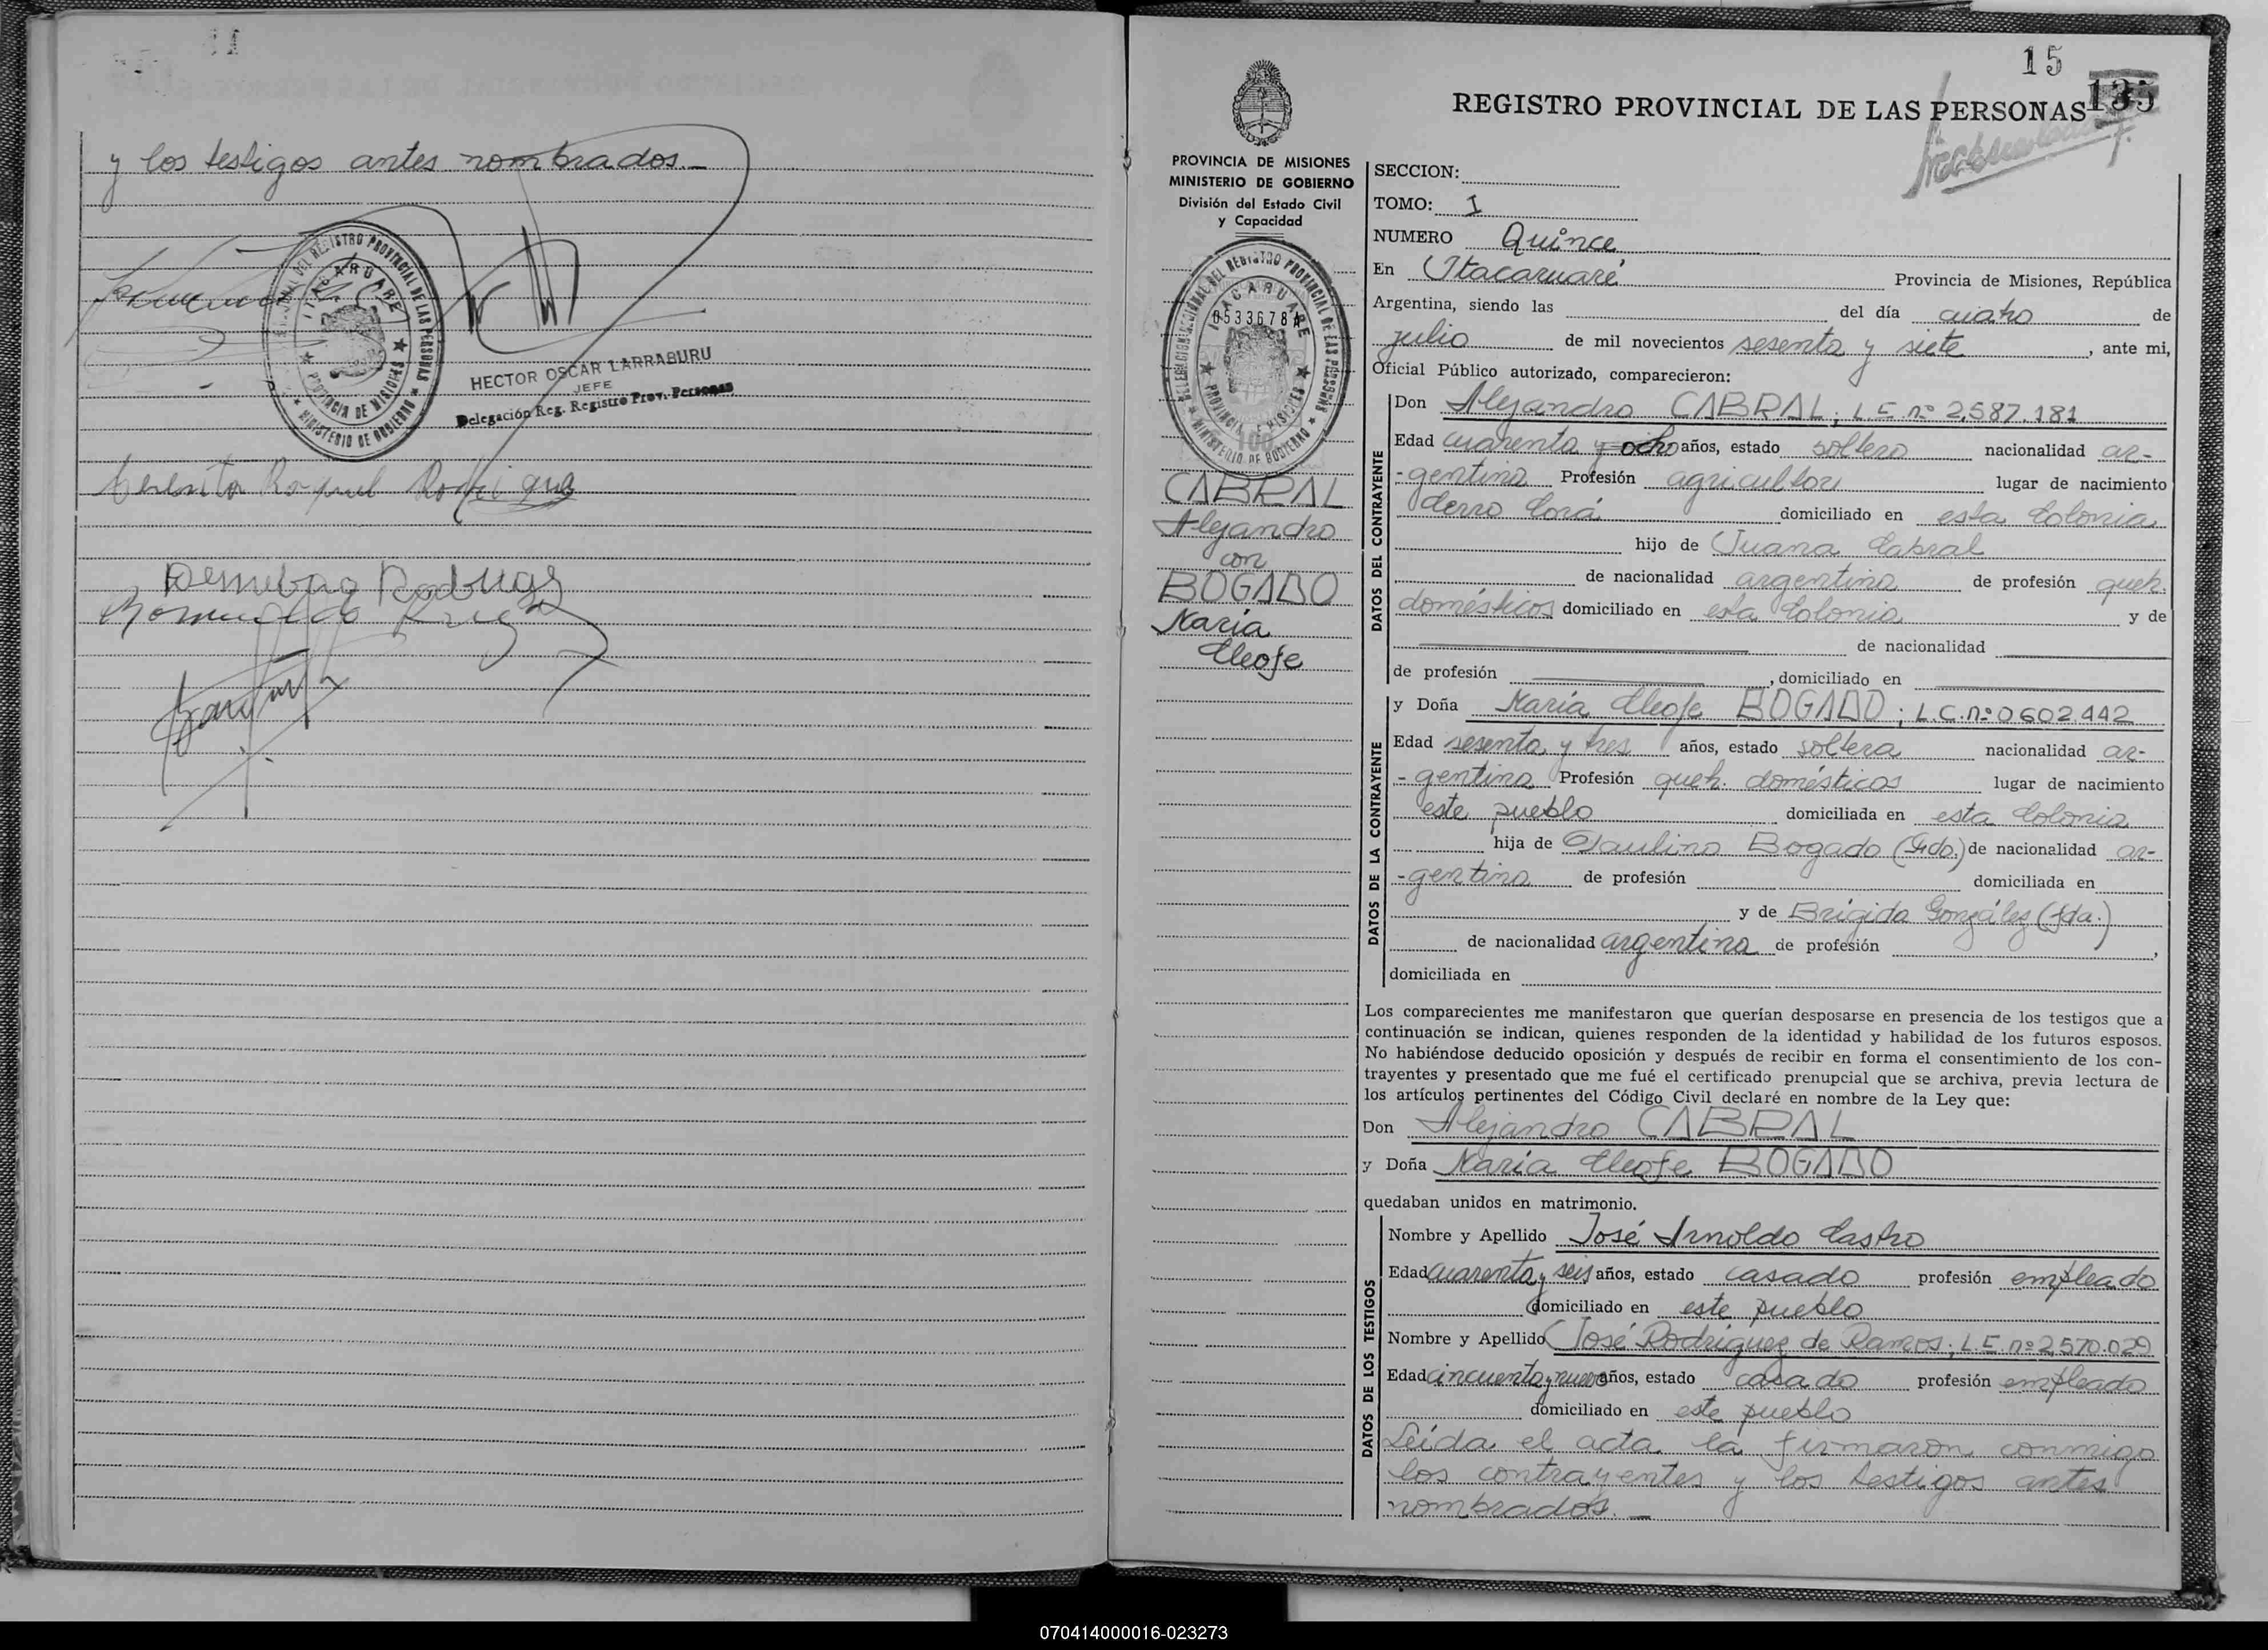 y los testigos antes nombrados.—
DEL REGISTRO PROVINCIAL DE LAS PERSONAS
ITACARUARE
PROVINCIA DE MISIONES
MINISTERIO DE GOBIERNO
HECTOR OSCAR LARRABURU
JEFE
Delegación Reg. Registro Prov. Personas
Raquel
15
135
REGISTRO PROVINCIAL DE LAS PERSONAS
PROVINCIA DE MISIONES
MINISTERIO DE GOBIERNO
División del Estado Civil
y Capacidad
DEL REGISTRO PROVINCIAL DE LAS PERSONAS
ITACARUARE
0533678A
PROVINCIA DE MISIONES
MINISTERIO DE GOBIERNO
100
CABRAL
Alejandro
con
BOGADO
María
Cleofe
SECCION:
TOMO: I
NUMERO Quince
En Itacaruaré Provincia de Misiones, República
Argentina, siendo las del día cuatro de
julio de mil novecientos sesenta y siete, ante mi,
Oficial Público autorizado, comparecieron:
DATOS DEL CONTRAYENTE
Don Alejandro CABRAL; L.E. nº 2.587.181
Edad cuarenta y ocho años, estado soltero nacionalidad ar-
-gentina Profesión agricultor lugar de nacimiento
Cerro Corá domiciliado en esta Colonia
hijo de Juana Cabral
de nacionalidad argentina de profesión queh.
domésticos domiciliado en esta Colonia y de
de nacionalidad
de profesión , domiciliado en
DATOS DE LA CONTRAYENTE
y Doña María Cleofe BOGADO; L.C. nº 0602.442
Edad sesenta y tres años, estado soltera nacionalidad ar-
-gentina Profesión queh. domésticos lugar de nacimiento
este pueblo domiciliada en esta Colonia
hija de Paulino Bogado (fdo.) de nacionalidad ar-
-gentina de profesión domiciliada en
y de Brígida González (fda.)
de nacionalidad argentina de profesión ,
domiciliada en
Los comparecientes me manifestaron que querían desposarse en presencia de los testigos que a
continuación se indican, quienes responden de la identidad y habilidad de los futuros esposos.
No habiéndose deducido oposición y después de recibir en forma el consentimiento de los con-
trayentes y presentado que me fué el certificado prenupcial que se archiva, previa lectura de
los artículos pertinentes del Código Civil declaré en nombre de la Ley que:
Don Alejandro CABRAL
y Doña María Cleofe BOGADO
quedaban unidos en matrimonio.
DATOS DE LOS TESTIGOS
Nombre y Apellido José Arnoldo Castro
Edad cuarenta y seis años, estado casado profesión empleado
domiciliado en este pueblo
Nombre y Apellido José Rodríguez de Ramos; L.E. nº 2.570.029
Edad cincuenta y nueve años, estado casado profesión empleado
domiciliado en este pueblo
Leída el acta la firmaron conmigo
los contrayentes y los testigos antes
nombrados.—
070414000016-023273